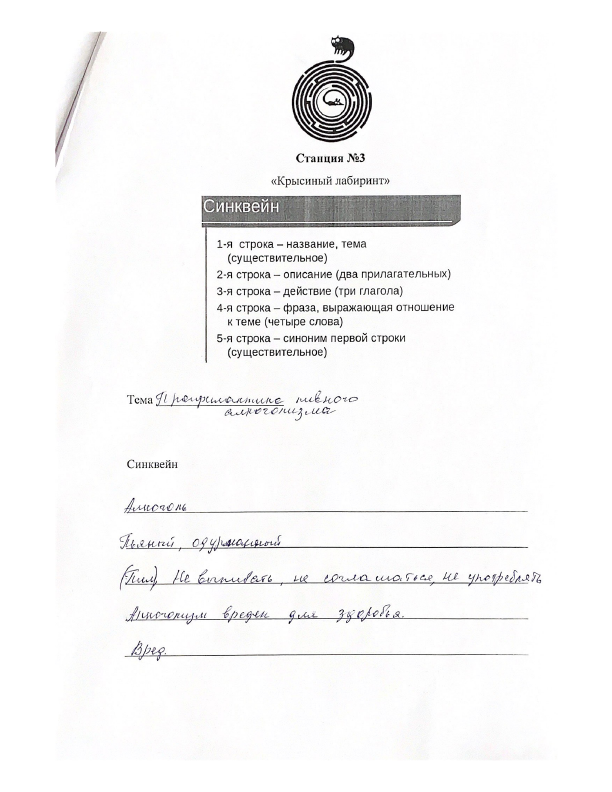 Станция №3
«Крысиный лабиринт»
Синквейн
1-я строка – название, тема
(существительное)
2-я строка – описание (два прилагательных)
3-я строка – действие (три глагола)
4-я строка – фраза, выражающая отношение
к теме (четыре слова)
5-я строка – синоним первой строки
(существительное)
Тема Профилактика пивного
алкоголизма
Синквейн
Алкоголь
Пьяный, одурманный
Не выпивать, не соглашаться, не употреблять
Алкоголизм вреден для здоровья.
Вред.